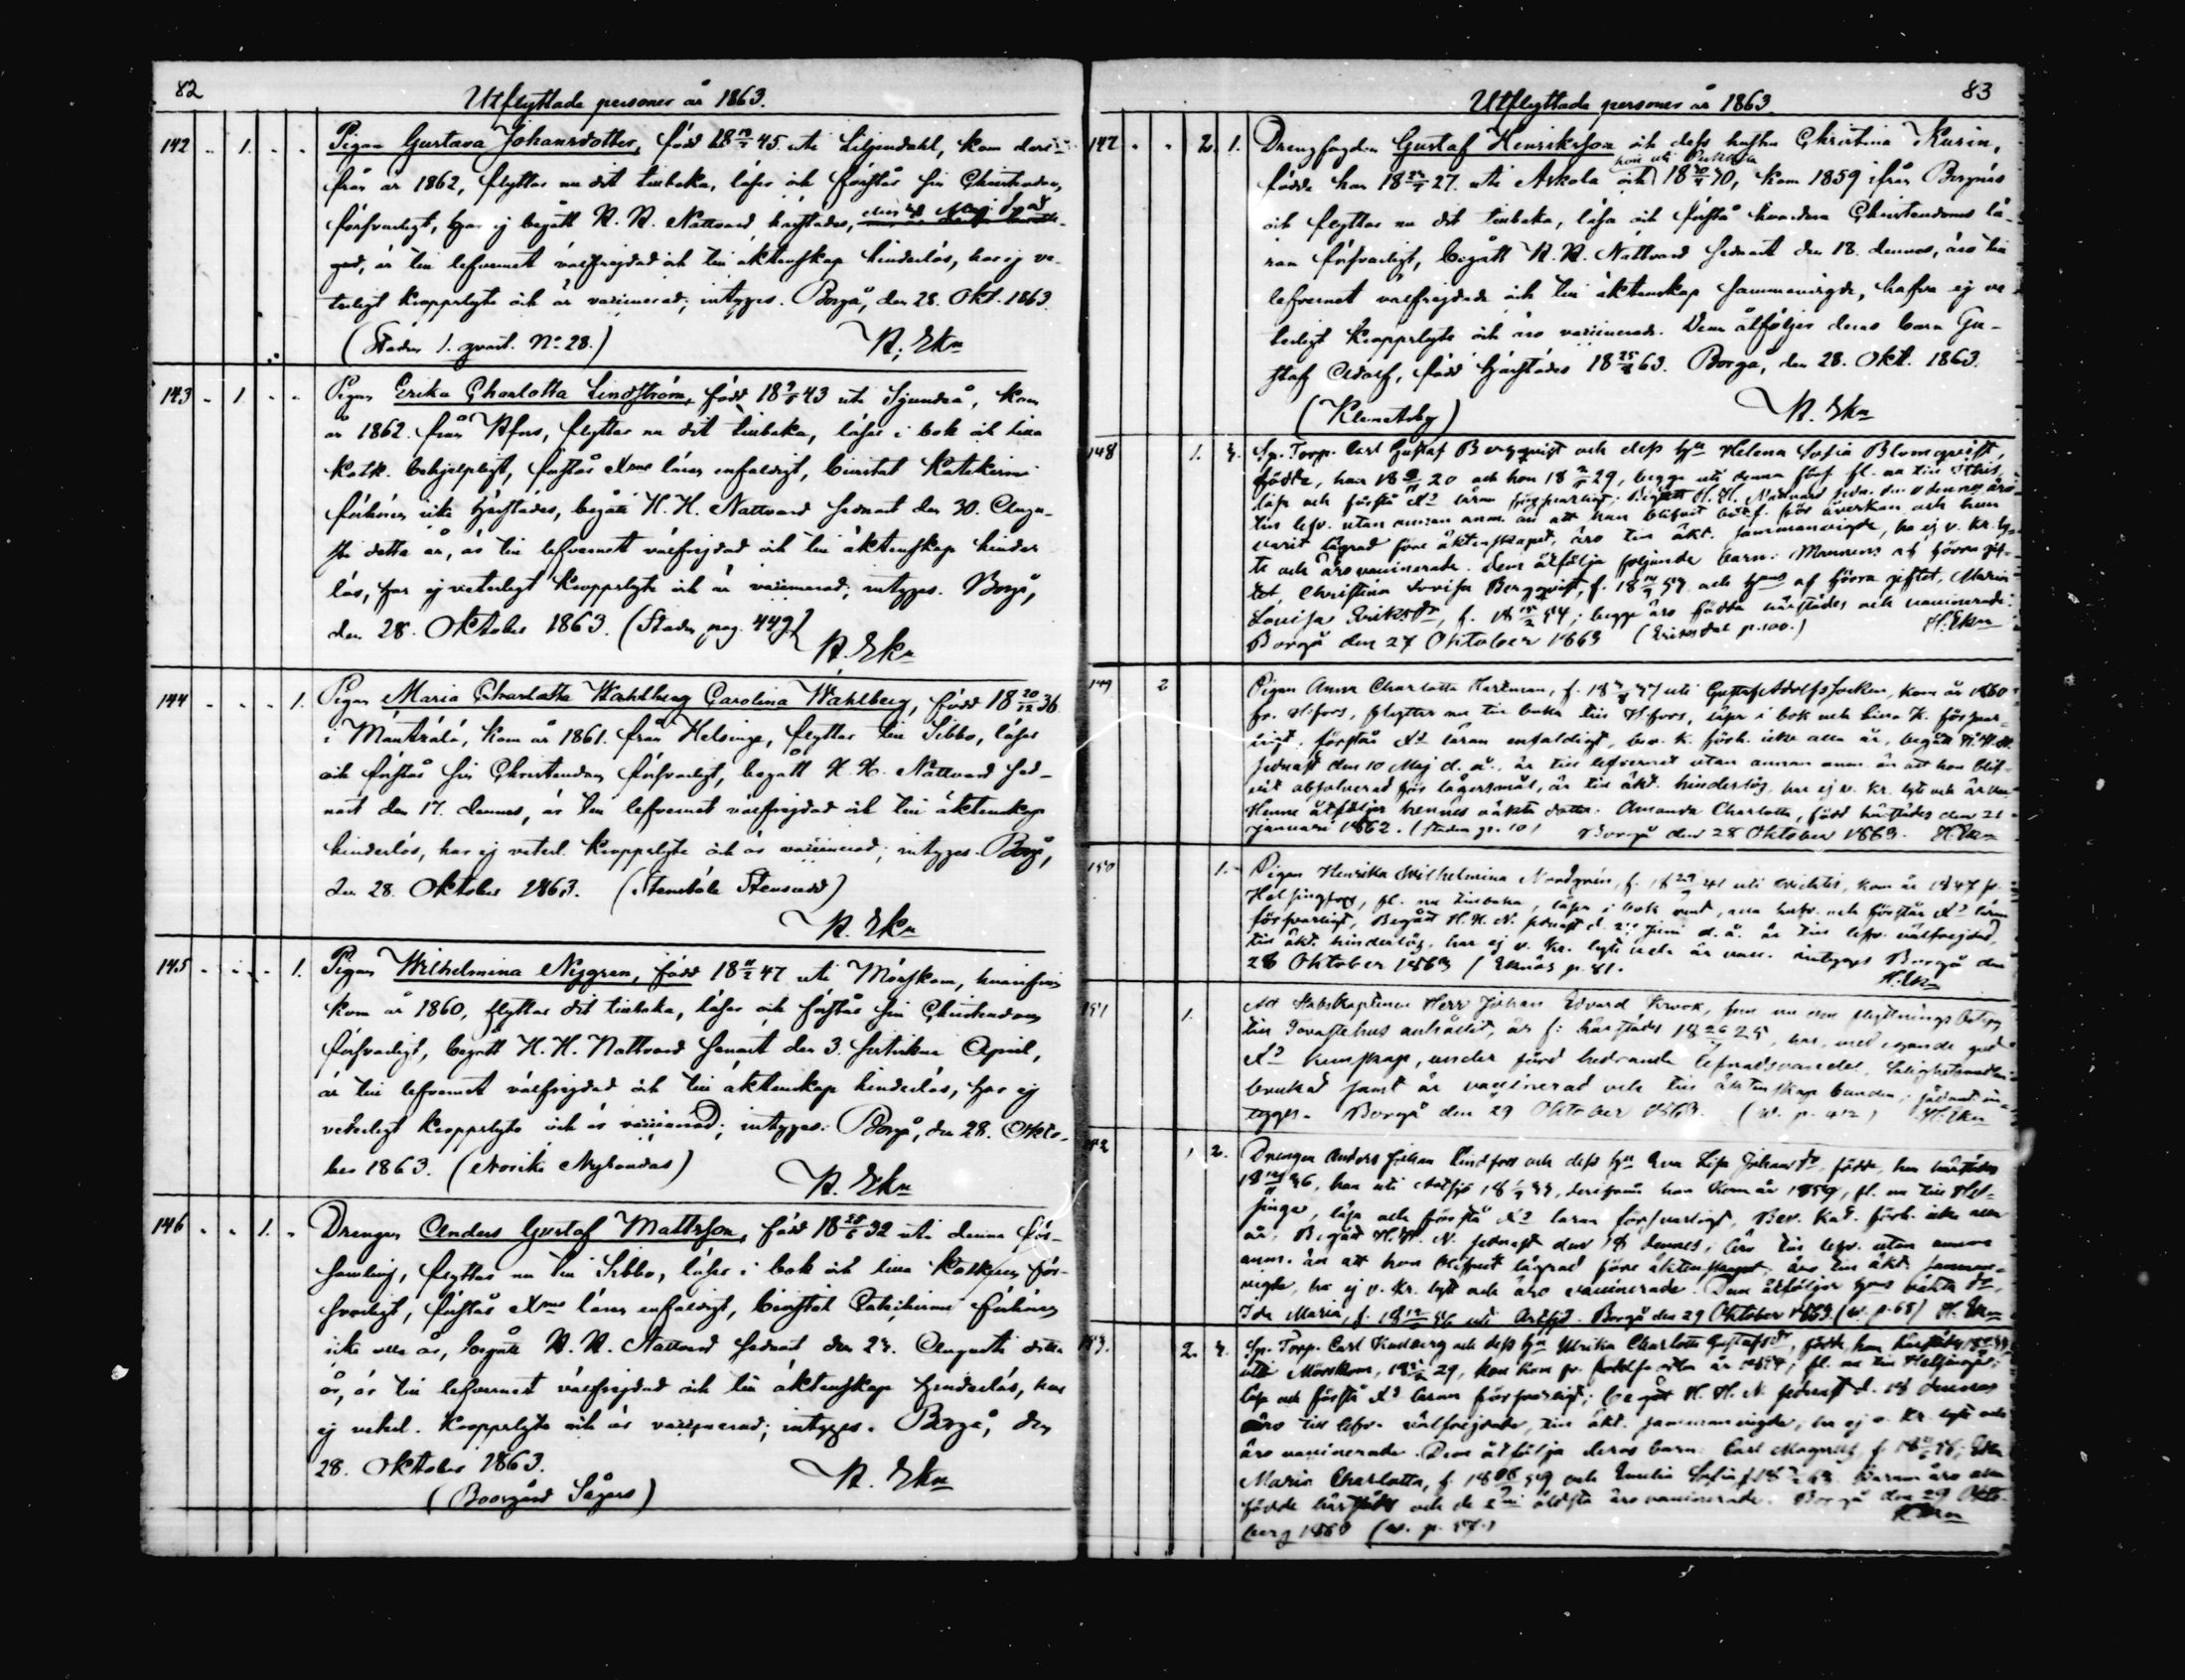 82
Utflyttade personer år 1863.
142 1. Pigan Gustava Johansdotter, född 18 45. uti Liljendahl, kom deri-
från år 1862, flyttar nu dit tillbaka, läser och förstår sin Christendom
försvarligt, har ej begått H. H. Nattvard härstädes,
god, är till lefvernet välfrejdad och till äktenskap hinderlös, har ej ve-
terligt kroppslyte och är vaccinerad; intygas. Borgå, den 28. Okt. 1863.
(Staden 1. qvart. No 28.) H. Ekn
143 1. Pigan Erika Charlotta Lindström, född 18 43 uti Sjundeå, kom
år 1862. från Hfors, flyttar nu dit tillbaka, läser i bok och lilla
katk. behjelpligt, förstår Xmi läran enfaldigt, bevistat Katekismi
förhören icke härstädes, begått H. H. Nattvard sednast den 30. Augu-
sti detta år, är till lefvernet välfrejdad och till äktenskap hinder
lös, har ej veterligt kroppslyte och är vaccinerad; intygas. Borgå,
den 28. Oktober 1863. (Staden pag. 449)
H. Ekn
144 1. Pigan Maria Charlotta Wahlberg Carolina Wahlberg, född 18 20/12 36
i Mäntsälä, kom år 1861. från Helsinge, flyttar till Sibbo, läser
och förstår sin Christendom försvarligt, begått H. H. Nattvard sed-
nast den 17. dennes, är till lefvernet välfrejdad och till äktenskap
hinderlös, har ej veterl. kroppslyte och är vaccinerad; intygas. Borgå,
den 28. Oktober 1863. (Stensböle Stensudd)
H. Ekn
145 1. Pigan Wilhelmina Nygren, född 18 47 uti Mörskom, hvarifrån
kom år 1860, flyttar dit tillbaka, läser och förstår sin Christendom
försvarligt, begått H. H. Nattvard senast den 3. sistvikne April,
är till lefvernet välfrejdad och till äktenskap hinderlös, har ej
veterligt kroppslyte och är vaccinerad; intygas. Borgå, den 28. Okto-
ber 1863. (Norike Nylandas)
H. Ekn
146 1. Drengen Anders Gustaf Mattsson, född 18 32 uti denna för-
samling, flyttar nu till Sibbo, läser i bok och lilla Katkesen för-
svarligt, förstår Xmi läran enfaldigt, bevistat Catechismi förhören
icke alla år, begått H. H. Nattvard sednast den Augusti detta
år, är till lefvernet välfrejdad och till äktenskap hinderlös, har
ej veterl. kroppslyte och är vaccinerad; intygas. Borgå, den
28. Oktober 1863.
(Boergård Sågars) H. Ekn
83
Utflyttade personer år 1863
147 2. 1. Drengfogden Gustaf Henriksson och dess hustru Christina Kurin,
hon uti
födda han 18 27. uti Askola och 18 30, kom 1859 ifrån Borgnäs
och flyttar nu dit tillbaka, läsa och förstå hvardera Christendoms lä-
ran försvarligt, begått H. H. Nattvard sednast den 18. dennes, äro till
lefvernet välfrejdade och till äktenskap sammanvigde, hafva ej ve
terligt kroppslyte och äro vaccinerade. Dem åtföljer deras barn Gu-
staf Adolf, född härstädes 18 25/8 63. Borgå, den 28. Okt. 1863.
(Klemetsby) H. Ekn
148 1. Sp. Torp. Carl Gustaf Bergqvist och dess hu Helena Sofia Blomqvist,
födda, han 18 20 och hon 18 29, begge uti denna förs. fl. nu till
läsa och förstå Xd läran försvarligt; Begått H. H. Nattvard sedn. den dennes äro
till lefv. utan annan anm. än att han blifvit för åverkan och hon
varit lägrad före äktenskapet, äro till äkt. sammanvigde, ha ej v. kr. ly-
te och äro vaccinerade. Dem åtfölja följande barn: Mannens af förra gif-
tet, Christina Lovisa Bergqvist, f. 18 57 och hans af förra giftet, Maria
Lovisa Eriksdr, f. 18 54; begge äro födda härstädes och vaccinerade.
Borgå den 27 Oktober 1863 (Eriksdal p. 100.) H. Ekn
149 2 Pigan Anna Charlotta Hartman, f. 18 37 uti Gustaf Adolfs socken, kom år 1860
fr. Hfors, flyttar nu till baka till H.fors, läser i bok och lilla K. försvar-
ligt, förstår Xd läran enfaldigt, bev. k. förh. icke alla år, begått H. H. N.
sednast den 10 Maj d. å., är till lefvernet utan annan anm. än att hon blif-
vit absolverad för lägersmål, är till äkt. hinderlös, har ej v. kr. lyt och är vac.
Henne åtföljer hennes oäkta dotter. Amanda Charlotta, född härstädes den 21
Januari 1862. (Staden p. 10) Borgå den 28 Oktober 1863. H. Ekn
150 1. Pigan Henrika Wilhelmina Nordgrén, f. 18 29 41 uti Wichtis, kom år 1847 fr.
Helsingfors, fl. nu tillbaka, läser i bok och förstår Xd läran
försvarligt, Begått H. H. N. sednast d. Juni d. å. är till lefv. välfrejdad,
till äkt. hinderlös, har ej v. kr. lyte och är vacc. intygas Borgå den
28 Oktober 1863 (Eknäs p. 81.
H. Ekn
151 1. Att Stabskaptenen Herr Johan Edvard Krook, som nu om flyttnings betyg
till Tavastehus anhållit, är f: härstädes 18 26 25, har, med egande god
Xd kunskap, under förd hedrande lefnadsvandel, Salighetsmedlen
brukat samt är vaccinerad och till äktenskap bunden; sådant in-
tygas. Borgå den 29 Oktober 1863. (W. p. 412) H. Ekn
152 1 2. Drengen Anders Johan Lindfors och dess hu Eva Lisa Johansdr, födda, han härstädes
18 36, hon uti Artsjö 18 33, derifrån hon kom år 1859, fl. nu till Hel-
singe, läsa och förstå Xd läran försvarligt, Bev. kat. förh. icke alla
år, Begått H. H. N. sednast den 18 dennes, äro till lefv. utan annan
anm. än att hon blifvit lägrad före äktenskapet, äro till äkt. samman-
vigde, ha ej v. kr. lyt och äro vaccinerade. Dem åtföljer hans oäkta dr,
Ida Maria, f. 18 56 uti Artsjö. Borgå den 29 Oktober 1863. (W. p. 68) H. Ekn
153. 2. Sp. Torp. Carl Lindberg och dess hu Ulrika Charlotta Gustafsdr, födda, han härstädes
uti Mörskom, 18 29, hon kom fr. år 1854; fl. nu till Helsingfors;
läsa och förstå Xd läran försvarligt; begått H. H. N. sednast d. 18 dennes
äro till lefv. välfrejdade, till äkt. sammanvigde, ha ej v. kr. lyt och
äro vaccinerade. Dem åtfölja deras barn: Carl Magnus, f. 18 56,
Maria Charlotta, f. 18 59 och Emelia Sofia f 18 63. Barnen äro alla
födde härstädes och de 2ne äldsta äro vaccinerade. Borgå den 29 Okto-
ber 1863 (W. p. 57.) H. Ekn